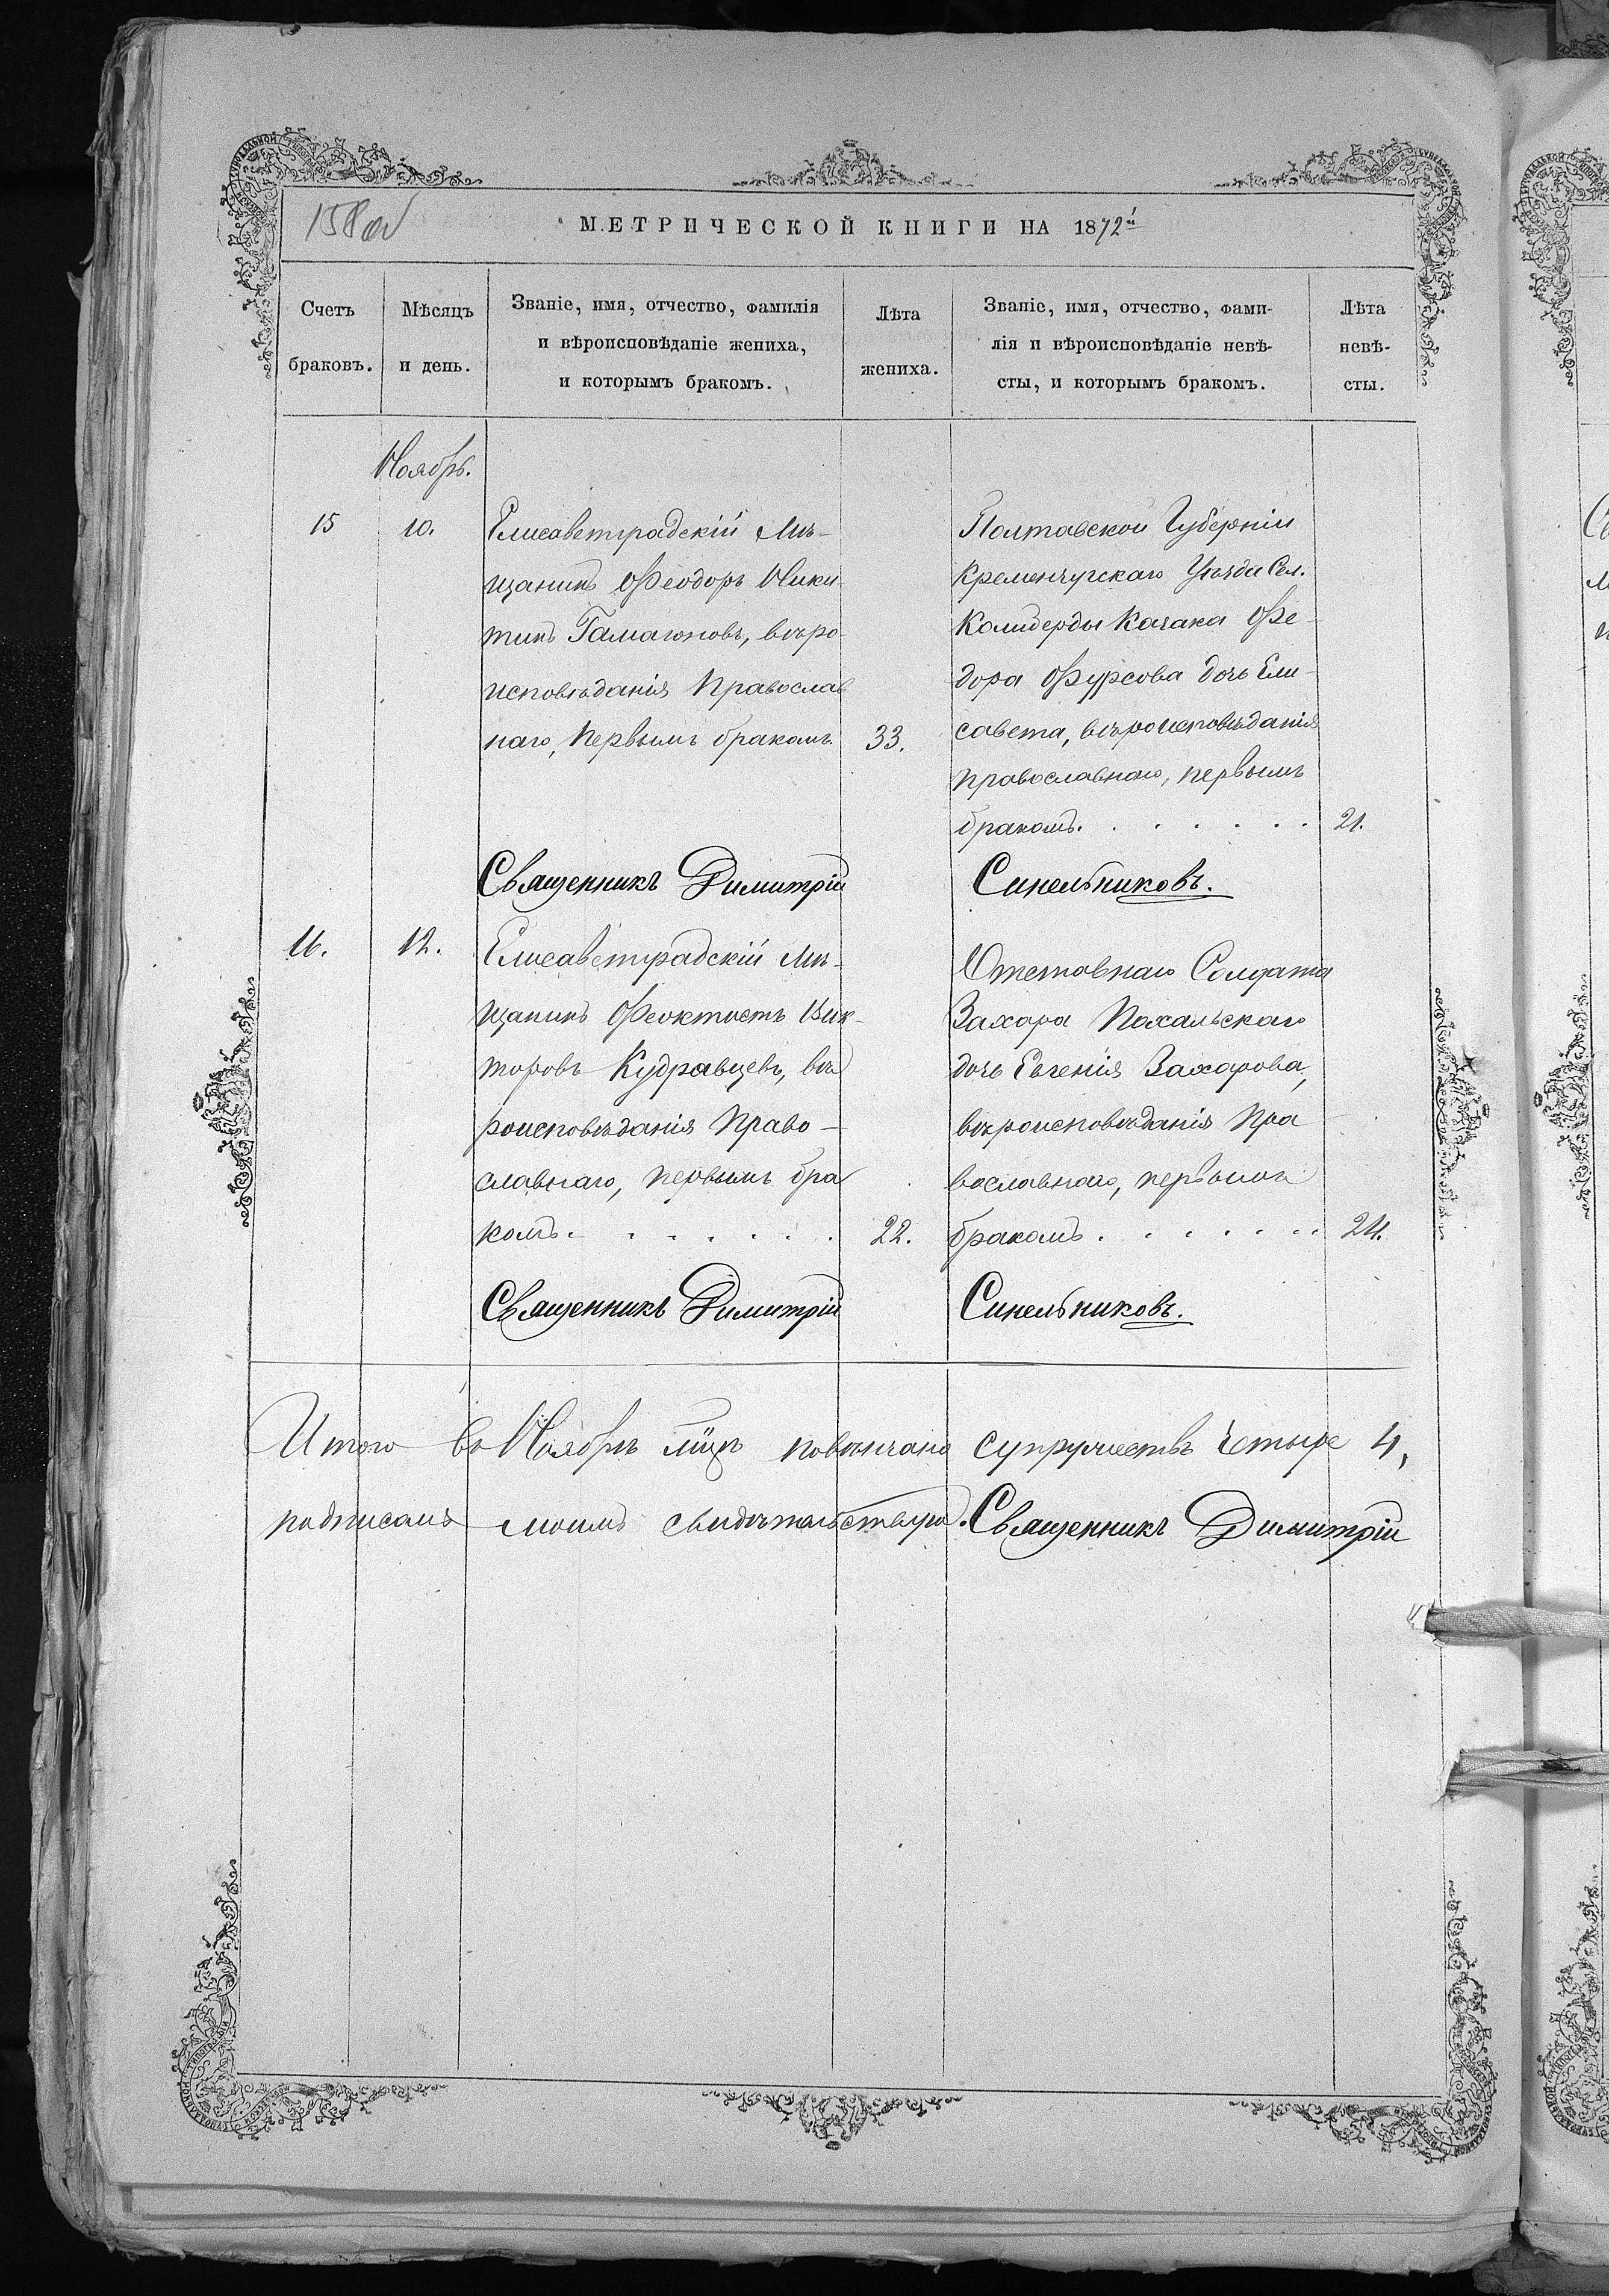 158 об
МЕТРИЧЕСКОЙ КНИГИ НА 1872й
Счетъ браковъ.
Мѣсяцъ и день.
Званіе, имя, отчество, фамилія
и вѣроисповѣданіе жениха,
и которымъ бракомъ.
Лѣта жениха.
Званіе, имя, отчество, фами-
лія и вѣроисповѣданіе невѣ-
сты, и которымъ бракомъ.
Лѣта невѣ-
сты.
Ноябрь.
15 10.
Елисаветградскій Мѣ-
щанинъ Феодоръ Ники
тинъ Гамагоновъ, вѣро
исповѣданія Православ
наго, первымъ бракомъ. 33.
Полтавской Губерніи
Кременчугскаго Уѣзда Сел.
Козака Фе-
дора Фурсова дочь Ели-
савета, вѣроисповѣданія
православнаго, первымъ
бракомъ. . . . . . . 21.
Священникъ Димитрій Синельниковъ.
16. 12.
Елисаветградскій Мѣ-
щанинъ Феоктистъ Вик-
торовъ Кудравцевъ, вѣ
роисповѣданія Право-
славнаго, первымъ бра
комъ. . . . . . . 22.
Отставнаго Солдата
Захара Похальскаго
дочь Евгенія Захарова,
вѣроисповѣданія Пра
вославнаго, первымъ
бракомъ . . . . . . 24.
Священникъ Димитрій Синельниковъ.
Итого въ Ноябрѣ м͠цѣ повѣнчано супружествъ Четыре 4,
подписомъ моимъ свидѣтельствую. Священникъ Димитрій